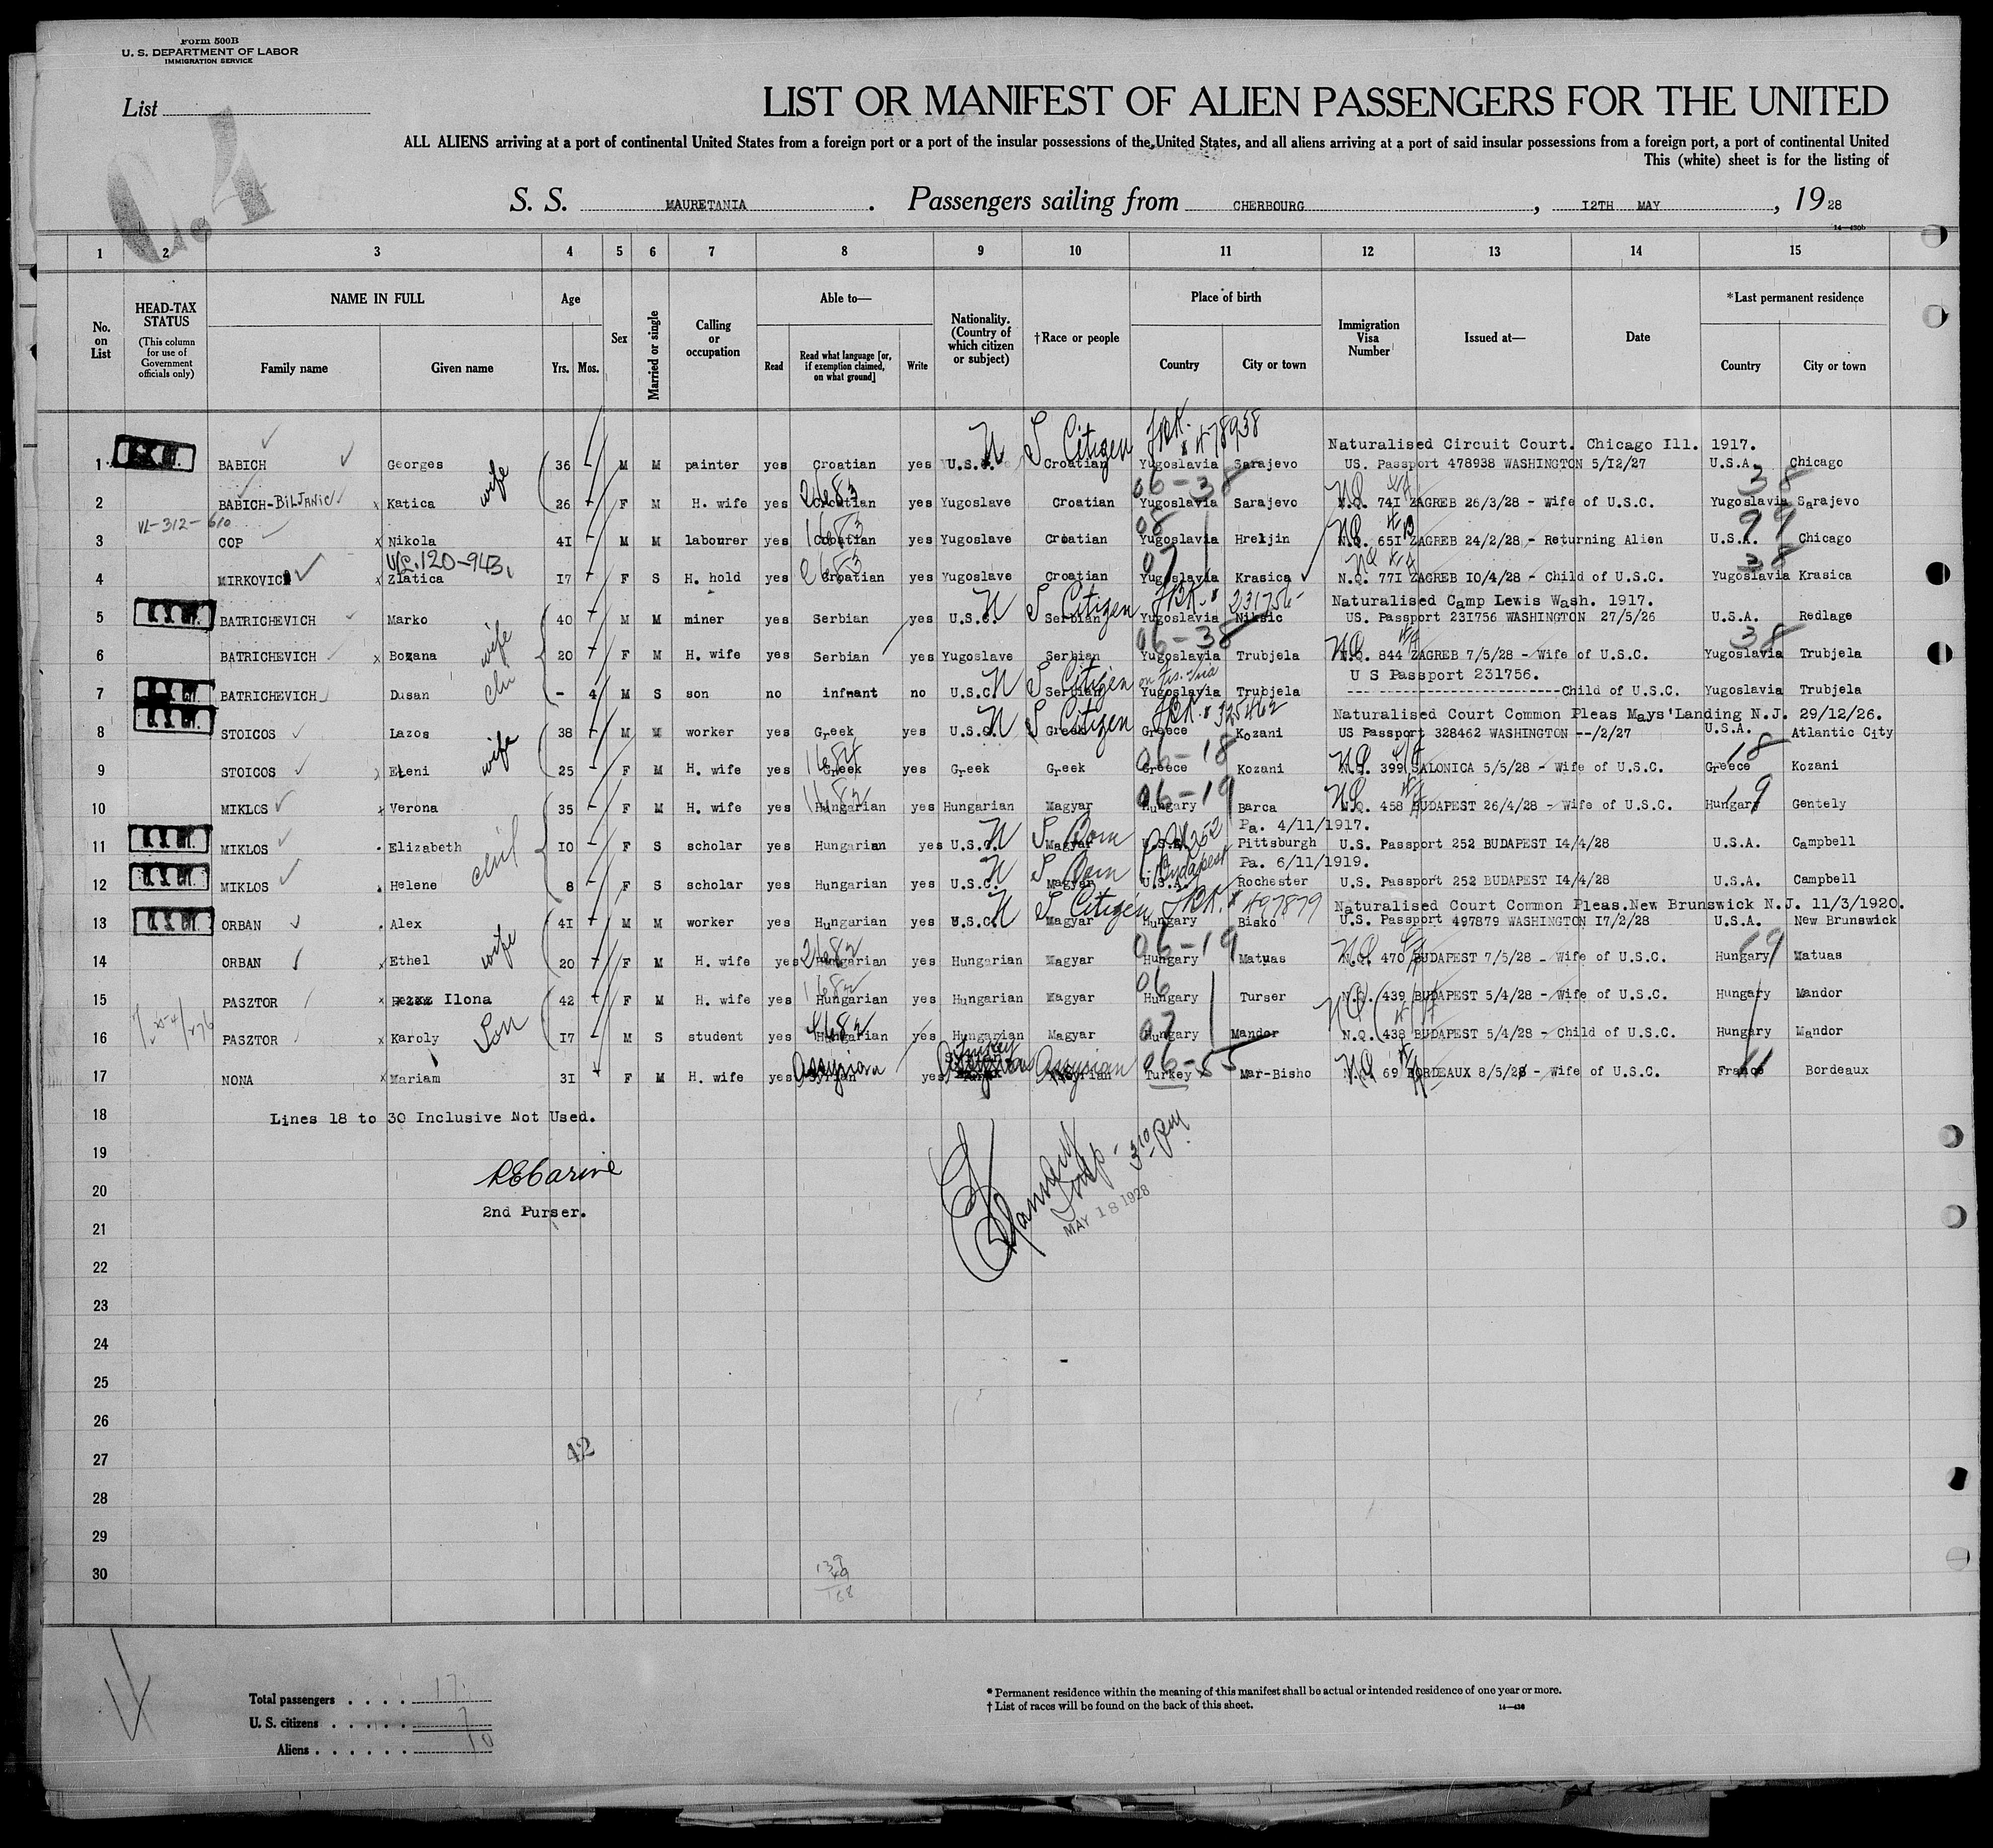 Form 500B
U. S. DEPARTMENT OF LABOR
IMMIGRATION SERVICE
List
C.4
LIST OR MANIFEST OF ALIEN PASSENGERS FOR THE UNITED
ALL ALIENS arriving at a port of continental United States from a foreign port or a port of the insular possessions of the United States, and all aliens arriving at a port of said insular possessions from a foreign port, a port of continental United
This (white) sheet is for the listing of
S. S. MAURETANIA . Passengers sailing from CHERBOURG , I2TH MAY , 19 28
14—430b
1 2 3 4 5 6 7 8 9 10 11 12 13 14 15
No. on List
HEAD-TAX STATUS (This column for use of Government officials only)
NAME IN FULL
Family name Given name
Age
Yrs. Mos.
Sex
Married or single
Calling or occupation
Able to—
Read
Read what language [or, if exemption claimed, on what ground]
Write
Nationality. (Country of which citizen or subject)
† Race or people
Place of birth
Country City or town
Immigration Visa Number
Issued at—
Date
*Last permanent residence
Country City or town
U S Citizen 478938 Naturalised Circuit Court. Chicago Ill. 1917.
1 BABICH Georges 36 M M painter yes Croatian yes U.S.C. Croatian Yugoslavia Sarajevo US. Passport 478938 WASHINGTON 5/12/27 U.S.A. Chicago
wife 06-38 38
2 BABICH-BILJANIC x Katica 26 F M H. wife yes Croatian yes Yugoslave Croatian Yugoslavia Sarajevo N.Q. 74I ZAGREB 26/3/28 - Wife of U.S.C. Yugoslavia Sarajevo
VL-312-610 08 99
3 COP x Nikola 4I M M labourer yes Croatian yes Yugoslave Croatian Yugoslavia Hreljin N.Q. 65I ZAGREB 24/2/28 - Returning Alien U.S.A. Chicago
120-943 07 38
4 MIRKOVIC x Zlatica I7 F S H. hold yes Croatian yes Yugoslave Croatian Yugoslavia Krasica N.Q. 77I ZAGREB IO/4/28 - Child of U.S.C. Yugoslavia Krasica
U S Citizen 231756 Naturalised Camp Lewis Wash. 1917.
5 BATRICHEVICH Marko 40 M M miner yes Serbian yes U.S.C. Serbian Yugoslavia Niksic US. Passport 231756 WASHINGTON 27/5/26 U.S.A. Redlage
wife 06-38 38
6 BATRICHEVICH x Bozana 20 F M H. wife yes Serbian yes Yugoslave Serbian Yugoslavia Trubjela N.Q. 844 ZAGREB 7/5/28 - Wife of U.S.C. Yugoslavia Trubjela
U S Citizen U S Passport 231756.
7 BATRICHEVICH Dusan - 4 M S son no infnant no U.S.C. Serbian Yugoslavia Trubjela Child of U.S.C. Yugoslavia Trubjela
U S Citizen Naturalised Court Common Pleas Mays'Landing N.J. 29/12/26.
8 STOICOS Lazos 38 M M worker yes Greek yes U.S.C. Greek Greece Kozani US Passport 328462 WASHINGTON --/2/27 U.S.A. Atlantic City
wife 06-18 18
9 STOICOS Eleni 25 F M H. wife yes Greek yes Greek Greek Greece Kozani N.Q. 399 SALONICA 5/5/28 - Wife of U.S.C. Greece Kozani
06-19 19
10 MIKLOS x Verona 35 F M H. wife yes Hungarian yes Hungarian Magyar Hungary Barca N.Q. 458 BUDAPEST 26/4/28 - Wife of U.S.C. Hungary Gentely
U S Born 252 Pa. 4/11/1917.
11 MIKLOS Elizabeth IO F S scholar yes Hungarian yes U.S.C. Magyar U.S.A. Pittsburgh U.S. Passport 252 BUDAPEST I4/4/28 U.S.A. Campbell
U S Born Budapest Pa. 6/11/1919.
12 MIKLOS Helene 8 F S scholar yes Hungarian yes U.S.C. Magyar U.S.A. Rochester U.S. Passport 252 BUDAPEST I4/4/28 U.S.A. Campbell
U S Citizen 497879 Naturalised Court Common Pleas.New Brunswick N.J. 11/3/1920.
13 ORBAN Alex 4I M M worker yes Hungarian yes U.S.C. Magyar Hungary Bisko U.S. Passport 497879 WASHINGTON I7/2/28 U.S.A. New Brunswick
wife 06-19 19
14 ORBAN x Ethel 20 F M H. wife yes Hungarian yes Hungarian Magyar Hungary Matuas N.Q. 470 BUDAPEST 7/5/28 - Wife of U.S.C. Hungary Matuas
06
15 PASZTOR x Ilona 42 F M H. wife yes Hungarian yes Hungarian Magyar Hungary Turser N.Q. 439 BUDAPEST 5/4/28 - Wife of U.S.C. Hungary Mandor
Son 07
16 PASZTOR x Karoly I7 M S student yes Hungarian yes Hungarian Magyar Hungary Mandor N.Q. 438 BUDAPEST 5/4/28 - Child of U.S.C. Hungary Mandor
Assyrian Turkey Assyrian 06-55
17 NONA x Mariam 3I F M H. wife yes Syrian yes Turkey Mar-Bisho N.Q. 69 BORDEAUX 8/5/28 - Wife of U.S.C. France Bordeaux
18 Lines 18 to 30 Inclusive Not Used.
19
20
2nd Purser.
3 10 PM
MAY 18 1928
21
22
23
24
25
26
27
42
28
29
30
Total passengers . . . . 17
U. S. citizens . . . . . 7
Aliens . . . . . . 10
* Permanent residence within the meaning of this manifest shall be actual or intended residence of one year or more.
† List of races will be found on the back of this sheet.
14—430